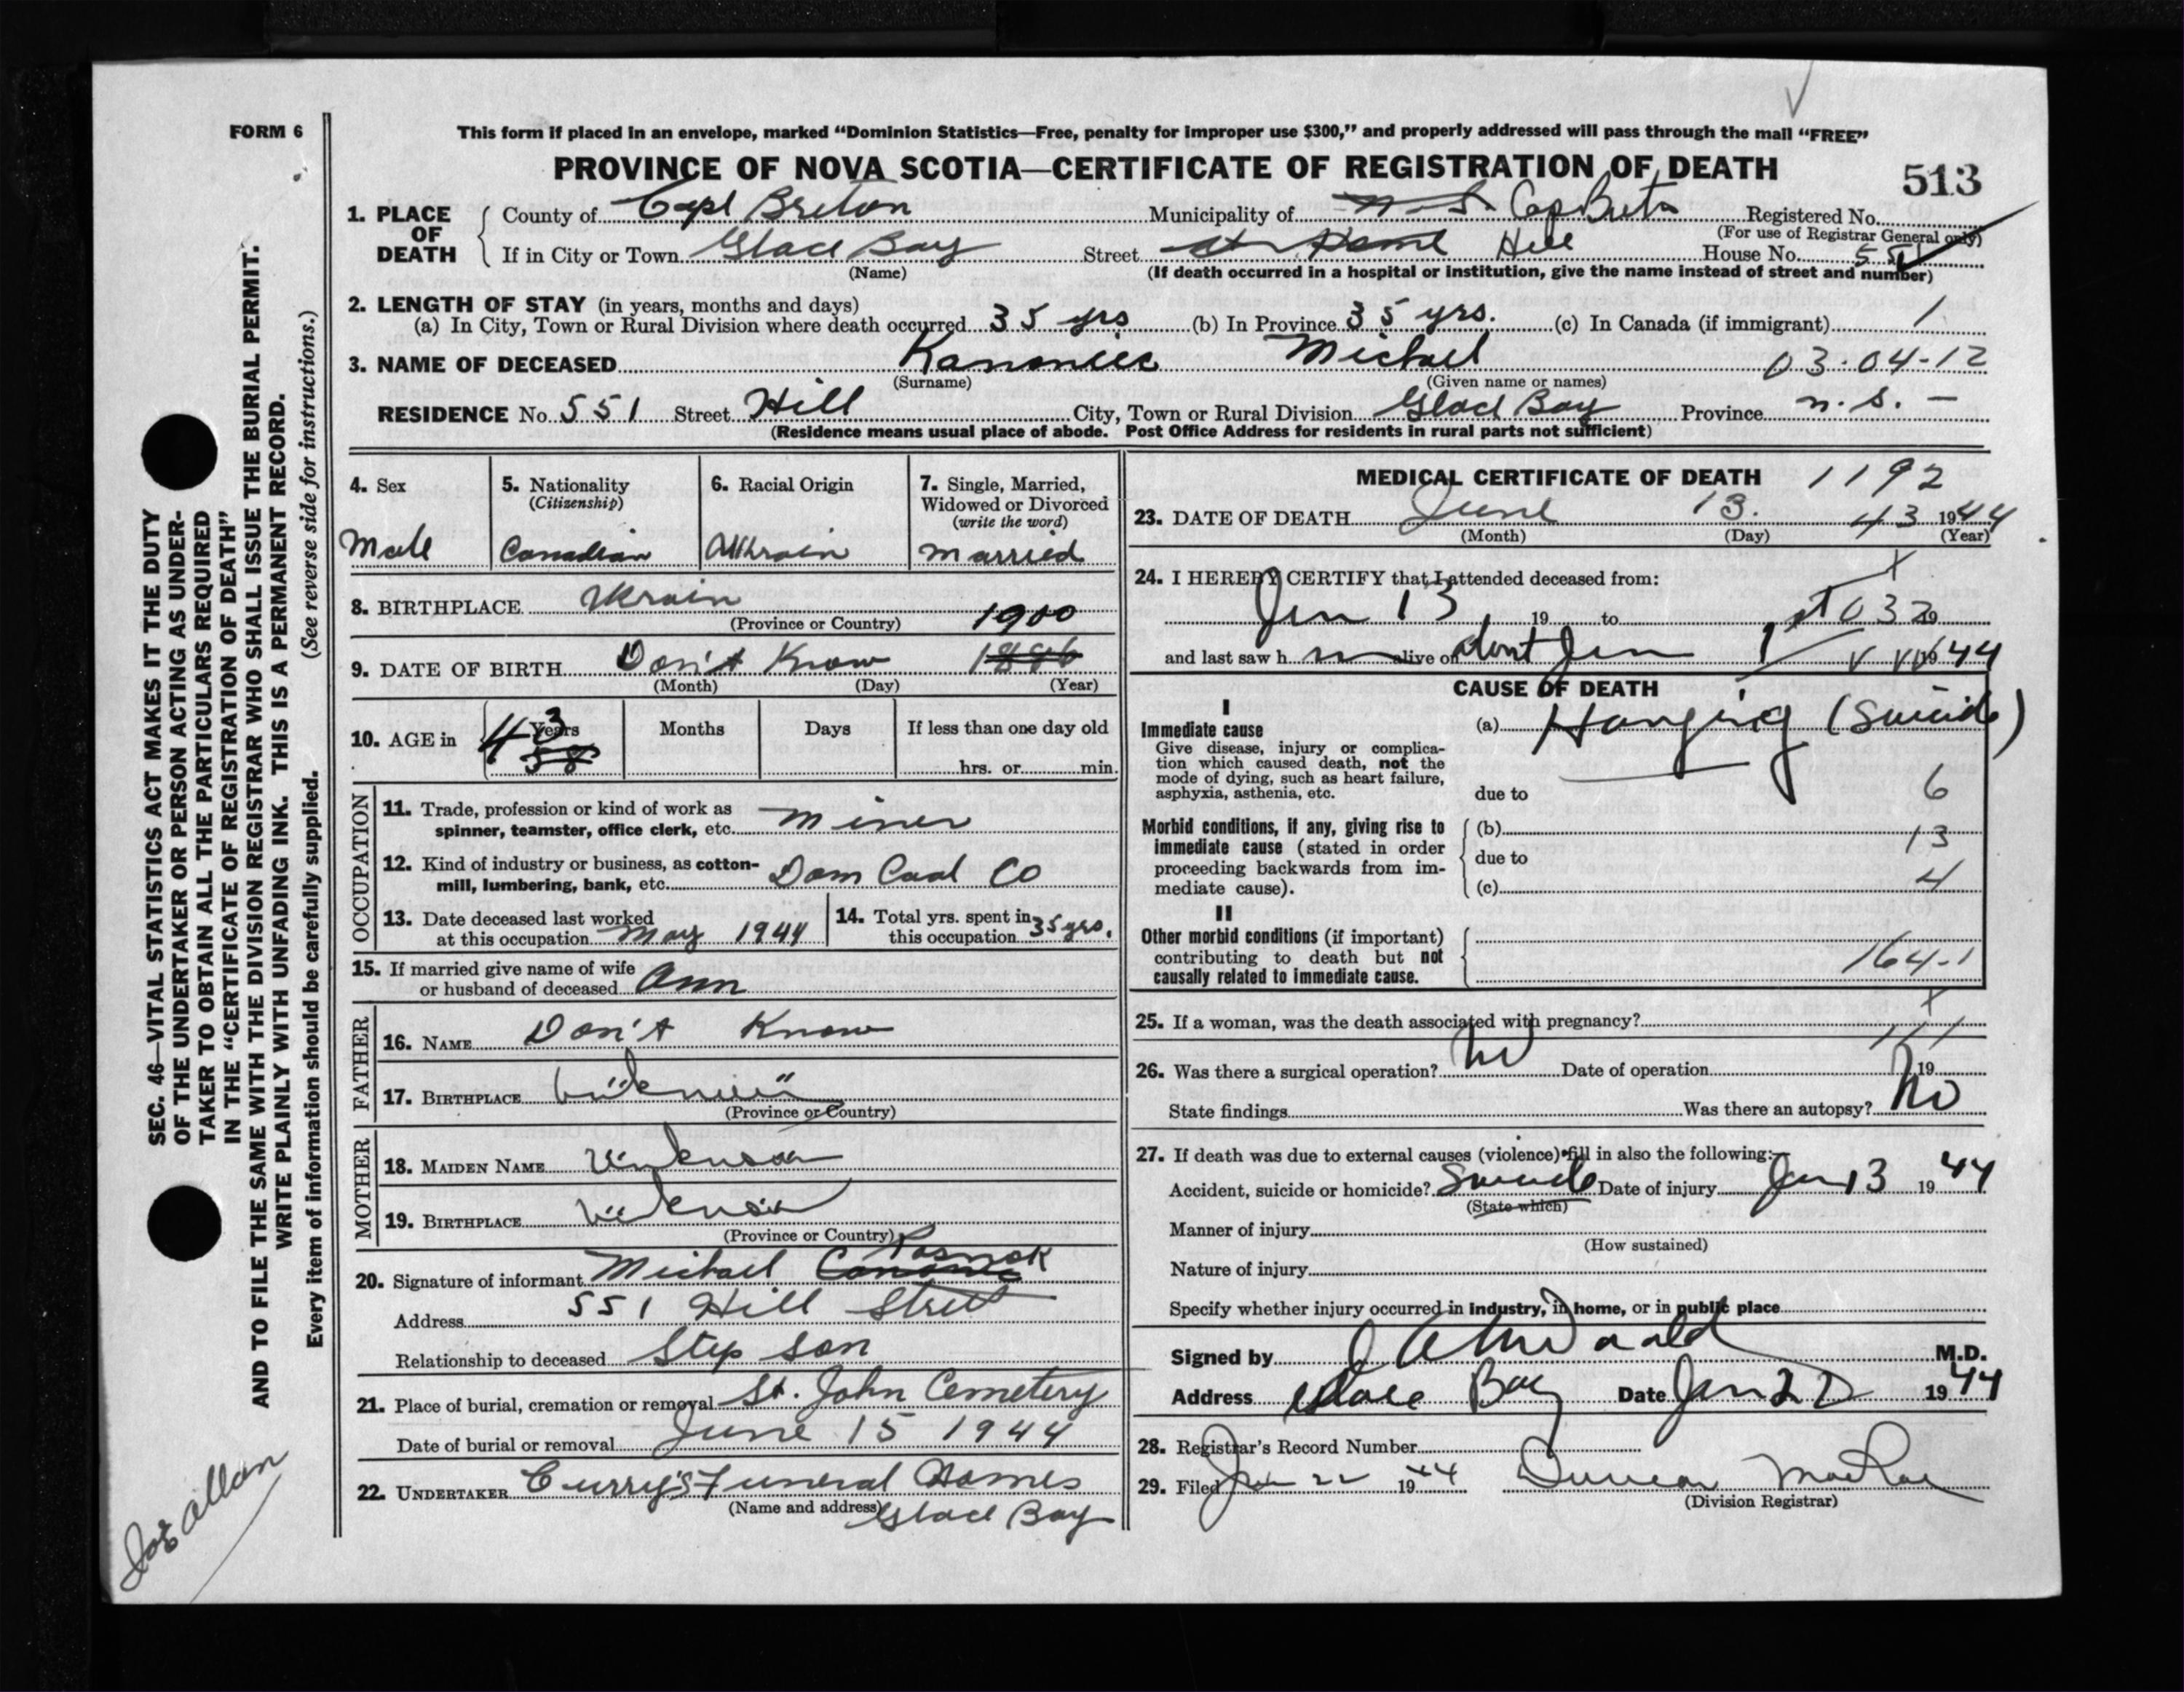 FORM 6
This form if placed in an envelope, marked “Dominion Statistics—Free, penalty for improper use $300,” and properly addressed will pass through the mail “FREE”
PROVINCE OF NOVA SCOTIA—CERTIFICATE OF REGISTRATION OF DEATH
513
1. PLACE OF DEATH
County of Cape Breton Municipality of N.S. Cap Breto Registered No.
(For use of Registrar General only)
If in City or Town Glace Bay Street At Home Hill House No. 551
(Name) (If death occurred in a hospital or institution, give the name instead of street and number)
2. LENGTH OF STAY (in years, months and days)
(a) In City, Town or Rural Division where death occurred 35 yrs (b) In Province 35 yrs. (c) In Canada (if immigrant) /
3. NAME OF DECEASED Kanoniec Michael 03-04-12
(Surname) (Given name or names)
RESIDENCE No. 551 Street Hill City, Town or Rural Division Glace Bay Province N.S. -
(Residence means usual place of abode. Post Office Address for residents in rural parts not sufficient)
4. Sex 5. Nationality 6. Racial Origin 7. Single, Married,
(Citizenship) Widowed or Divorced
(write the word)
Male Canadian Ukrain Married
8. BIRTHPLACE Ukrain
(Province or Country) 1900
9. DATE OF BIRTH Don't Know 1886
(Month) (Day) (Year)
10. AGE in 43 Years Months Days If less than one day old
58 hrs. or min.
OCCUPATION
11. Trade, profession or kind of work as
spinner, teamster, office clerk, etc. Miner
12. Kind of industry or business, as cotton-
mill, lumbering, bank, etc. Dom Coal Co
13. Date deceased last worked
at this occupation May 1944
14. Total yrs. spent in
this occupation 35 yrs.
15. If married give name of wife
or husband of deceased Ann
FATHER
16. NAME Don't Know
17. BIRTHPLACE
(Province or Country)
MOTHER
18. MAIDEN NAME
19. BIRTHPLACE
(Province or Country)
20. Signature of informant Michael
Address 551 Hill Street
Relationship to deceased Step Son
21. Place of burial, cremation or removal St. John Cemetery
Date of burial or removal June 15 1944
22. UNDERTAKER Curry's Funeral Homes
(Name and address) Glace Bay
MEDICAL CERTIFICATE OF DEATH 1192
23. DATE OF DEATH June 13. 43 1944
(Month) (Day) (Year)
24. I HEREBY CERTIFY that I attended deceased from:
Jun 13 19 to 19
and last saw h m alive on 1944
CAUSE OF DEATH
I
Immediate cause
Give disease, injury or complica-
tion which caused death, not the
mode of dying, such as heart failure,
asphyxia, asthenia, etc.
(a) Hanging (Suicide)
due to 6
Morbid conditions, if any, giving rise to
immediate cause (stated in order
proceeding backwards from im-
mediate cause).
(b) 13
due to
(c) 4
II
Other morbid conditions (if important)
contributing to death but not
causally related to immediate cause.
164-1
25. If a woman, was the death associated with pregnancy?
26. Was there a surgical operation? No Date of operation 19
State findings Was there an autopsy? No
27. If death was due to external causes (violence) fill in also the following:
Accident, suicide or homicide? Suicide Date of injury Jun 13 1944
(State which)
Manner of injury
(How sustained)
Nature of injury
Specify whether injury occurred in industry, in home, or in public place
Signed by M.D.
Address Glace Bay Date Jun 22 1944
28. Registrar's Record Number
29. Filed Jun 22 1944 Duncan MacRae
(Division Registrar)
SEC. 46—VITAL STATISTICS ACT MAKES IT THE DUTY
OF THE UNDERTAKER OR PERSON ACTING AS UNDER-
TAKER TO OBTAIN ALL THE PARTICULARS REQUIRED
IN THE “CERTIFICATE OF REGISTRATION OF DEATH”
AND TO FILE THE SAME WITH THE DIVISION REGISTRAR WHO SHALL ISSUE THE BURIAL PERMIT.
WRITE PLAINLY WITH UNFADING INK. THIS IS A PERMANENT RECORD.
Every item of information should be carefully supplied. (See reverse side for instructions.)
Allan